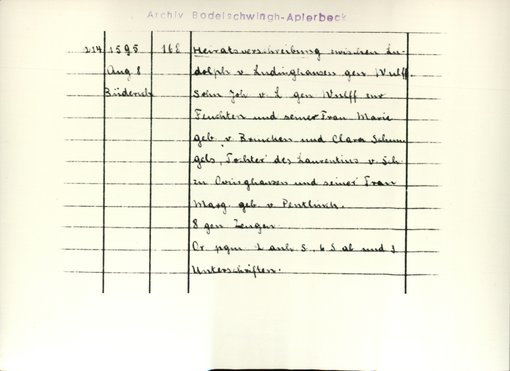 Archiv Bodelschwingh-Aplerbeck
214 1595 162 Heiratsverschreibung zwischen Lu-
Aug. 8 dolph v. Ludinghausen gen Wulff.
Büderich Sohn Joh v. L gen Wulff zur
Feuchten und seiner Frau Marie
geb. v. und Clara Schun-
gels, Tochter des Laurentius v. Sch.
zu Ovinghausen und seiner Frau
Marg. geb v. Pentlinck.
8 gen Zeugen
Or. pgm. 2 anh S., 6 S ab und 2
Unterschriften.